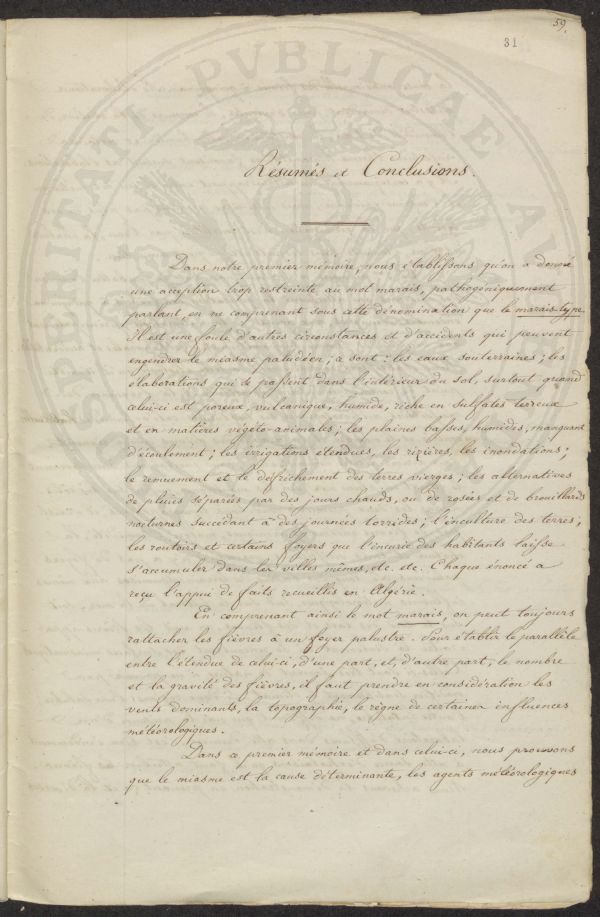 59.
31
Résumés et Conclusions.
Dans notre premier mémoire, nous établissons qu'on a donné
une acception trop restreinte au mot marais, pathogéniquement
parlant, en ne comprenant sous cette dénomination que le marais-type.
Il est une foule d'autres circonstances et d'accidents qui peuvent
engendrer le miasme paludéen; ce sont: les eaux souterraines; les
élaborations qui se passent dans l'intérieur du sol, surtout quand
celui-ci est poreux, vulcanique, humide, riche en sulfates terreux
et en matières végéto-animales; les plaines basses, humides, manquant
d'écoulement; les irrigations étendues, les rizières, les inondations;
le remuement et le défrichement des terres vierges; les alternatives
de pluies séparées par des jours chauds, ou de rosées et de brouillards
nocturnes succédant à des journées torrides; l'inculture des terres;
les routoirs et certains foyers que l'incurie des habitants laisse
s'accumuler dans les villes mêmes, etc. etc. Chaque énoncé a
reçu l'appui de faits recueillis en Algérie.
En comprenant ainsi le mot marais, on peut toujours
rattacher les fièvres à un foyer palustre. Pour établir le parallèle
entre l'étendue de celui-ci, d'une part, et, d'autre part, le nombre
et la gravité des fièvres, il faut prendre en considération les
vents dominants, la topographie, le règne de certaines influences
météorologiques.
Dans ce premier mémoire et dans celui-ci, nous prouvons
que le miasme est la cause déterminante, les agents météorologiques
PROSPERITATI PUBLICAE AU